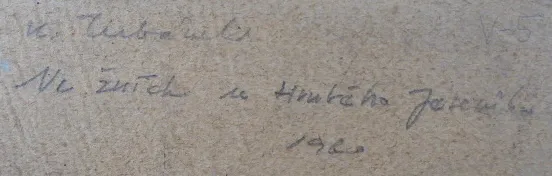 V-5
Ve žních u Hrubého Jeseníku
1960